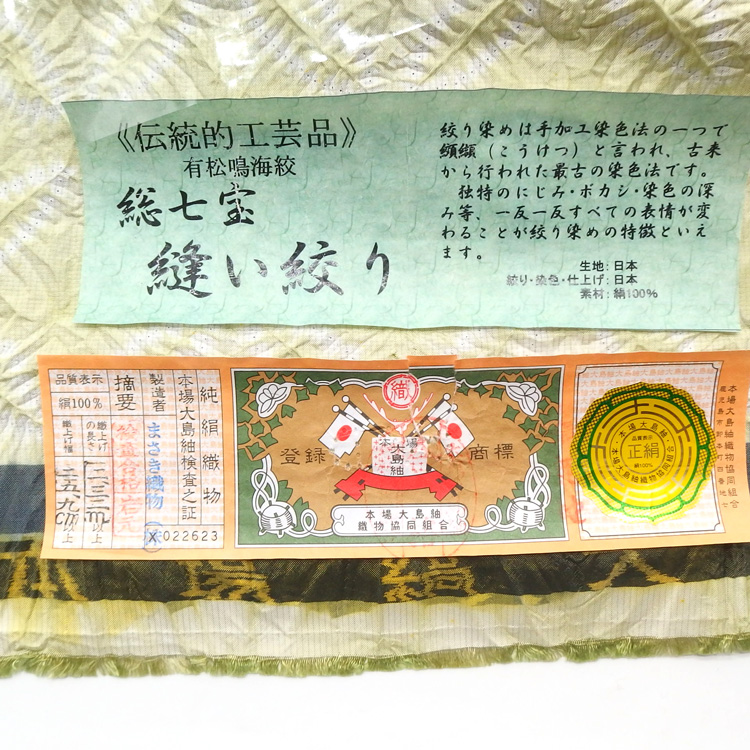 《伝統的工芸品》
有松鳴海絞
総七宝
縫い絞り
絞り染めは手加工染色法の一つで
纐纈（こうけつ）と言われ、古来
から行われた最古の染色法です。
独特のにじみ・ボカシ・染色の深
み等、一反一反すべての表情が変
わることが絞り染めの特徴といえ
ます。
生地:日本
絞り・染色・仕上げ:日本
素材:絹100%
純絹織物
本場大島紬検査之証
製造者
まさき織物
摘要
品質表示
絹100%
織上げの長さ
以上
織上げ幅
以上
X 022623
登録
商標
本場
大島
紬
本場大島紬
織物協同組合
本場大島紬織物協同組合
品質表示
正絹
絹100%
本場大島紬織物協同組合